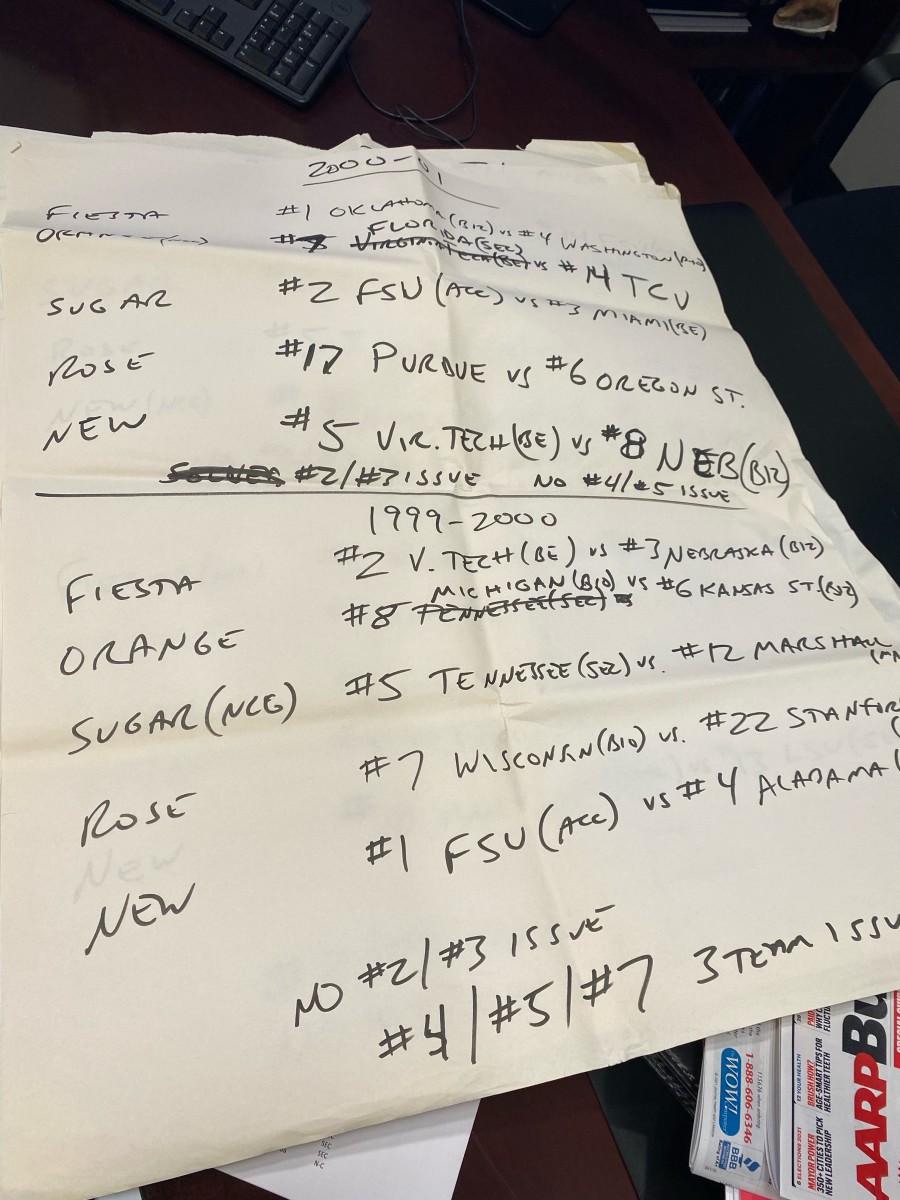 2000-01
FIESTA #1 OKLAHOMA (B12) vs #4 WASHINGTON (P10)
FLORIDA (SEC)
#7 VIRGINIA TECH (BE) vs #14 TCU
SUGAR #2 FSU (ACC) vs #3 MIAMI (BE)
ROSE #17 PURDUE vs #6 OREGON ST.
NEW #5 VIR. TECH (BE) vs #8 NEB (B12)
SOLVES #2/#3 ISSUE NO #4/#5 ISSUE
1999-2000
FIESTA #2 V. TECH (BE) vs #3 NEBRASKA (B12)
MICHIGAN (B10) vs #6 KANSAS ST. (B12)
ORANGE #8 TENNESSEE (SEC)
SUGAR (NCG) #5 TENNESSEE (SEC) vs. #12 MARSHALL
ROSE #7 WISCONSIN (B10) vs. #22 STANFOR
NEW #1 FSU (ACC) vs #4 ALABAMA (
NO #2/#3 ISSUE
#4/#5/#7 3 TEAM ISSU
NEW (NCG)
New
SEC
SEC
N-C
WOW!
1-888-606-6346
BBB
YOUR HEALTH
BRUSH HOW?
AGE-SMART TIPS FOR
HEALTHIER TEETH
ELECTIONS 2021
MAYOR POWER
350+ CITIES TO PICK
NEW LEADERSHIP
AARP Bu